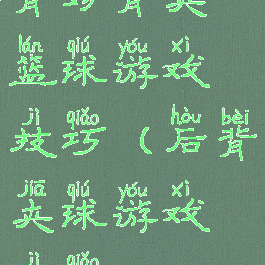 lán qiú yóu xì
篮球游戏
jì qiǎo hòu bèi
技巧（后背
jiā qiú yóu xì
夹球游戏
jì qiǎo